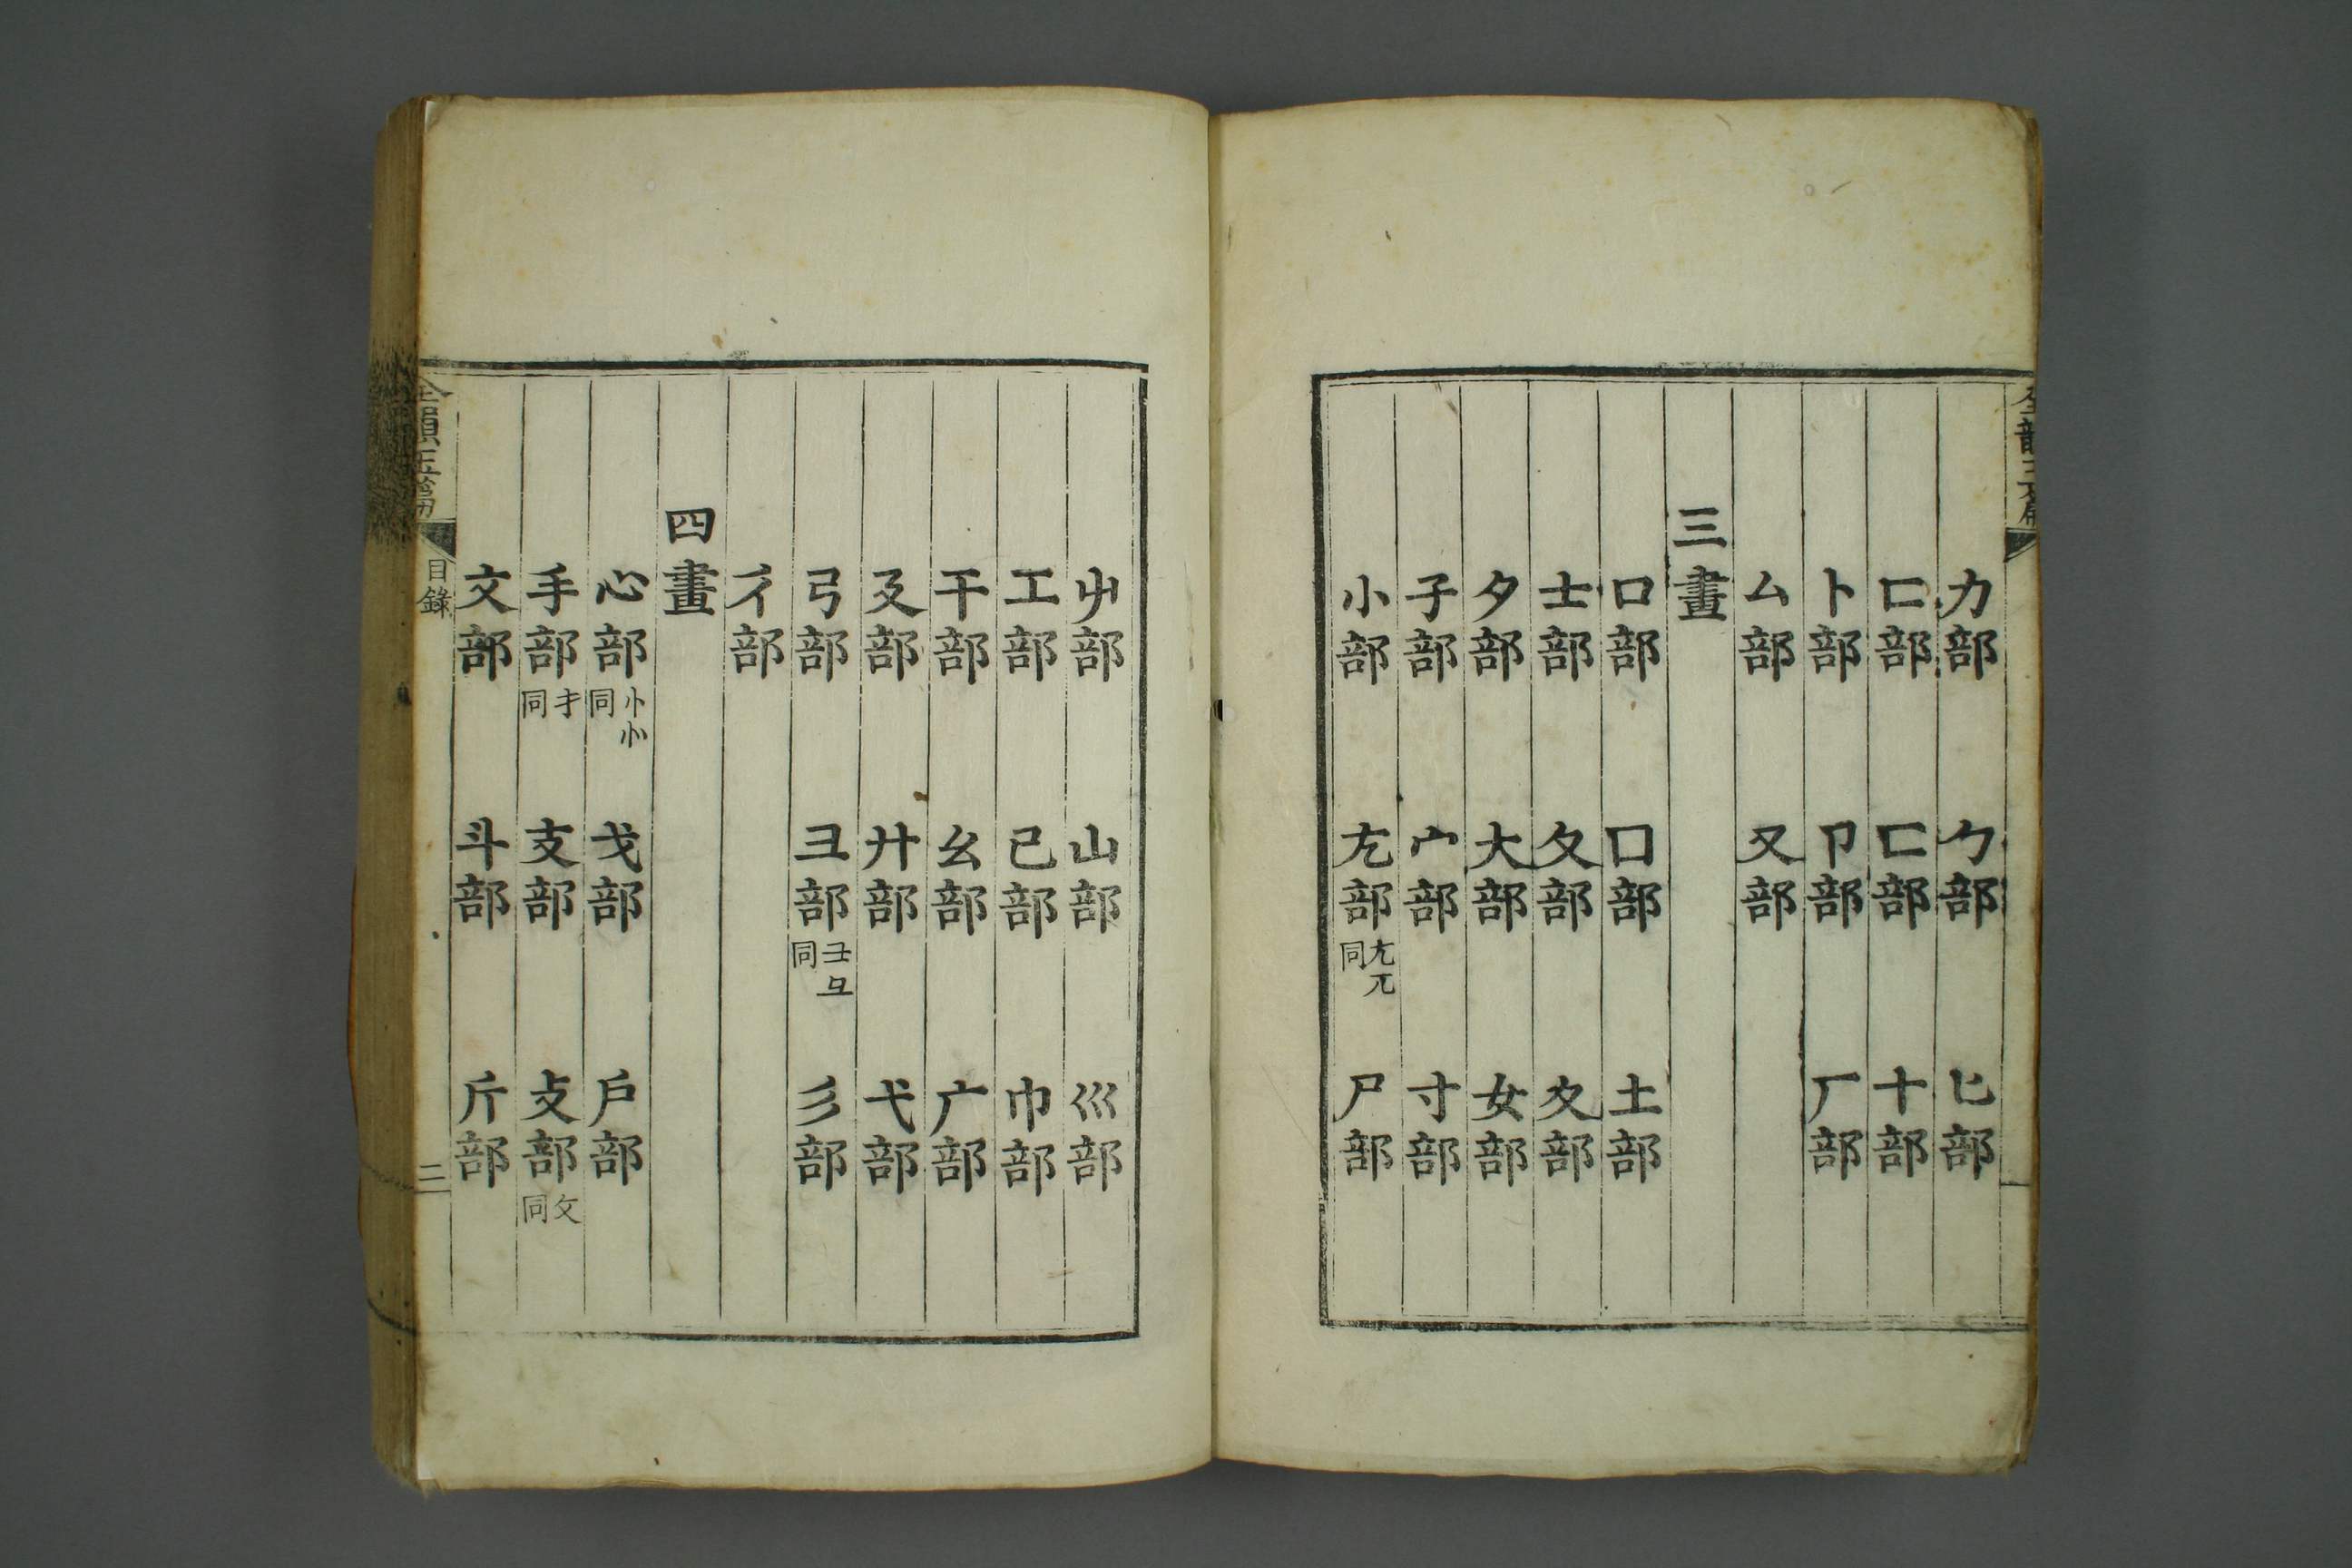 全韻玉篇
力部 勹部 匕部
匚部 匸部 十部
卜部 卩部 厂部
厶部 又部
三畫
口部 囗部 土部
士部 夂部 夊部
夕部 大部 女部
子部 宀部 寸部
小部 尢部 尣兀同 尸部
屮部 山部 巛部
工部 己部 巾部
干部 幺部 广部
廴部 廾部 弋部
弓部 彐部 彑同 彡部
彳部
四畫
心部 忄㣺同 戈部 戶部
手部 扌同 支部 攴部 攵同
文部 斗部 斤部
全韻玉篇 目錄 二